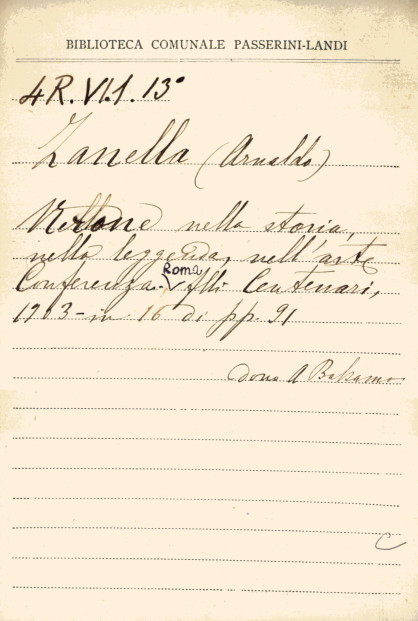 BIBLIOTECA COMUNALE PASSERINI-LANDI
4R. VI.1. 13°
Zanella (Arnaldo)
Nerone nella storia,
nella leggenda, nell'arte
Conferenza. - Roma flli Centenari,
1903 - in 16 di pp. 91
dono A